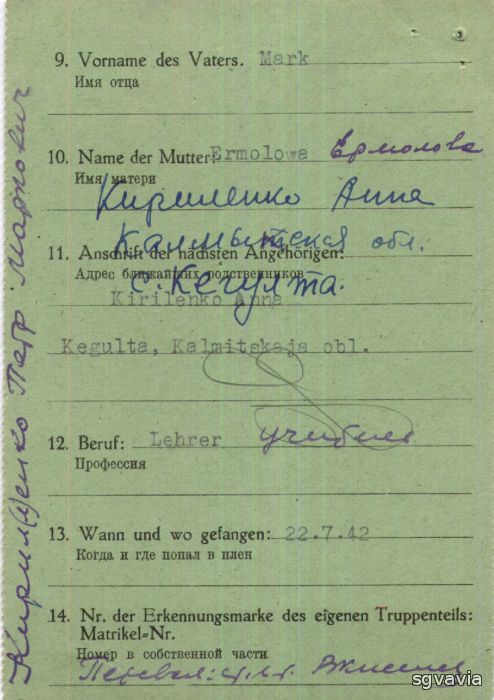 9. Vorname des Vaters. Mark
Имя отца
10. Name der Mutter: Ermolowa Ермолова
Имя матери
Кириленко Анна
Калмытская обл.
11. Anschrift der nächsten Angehörigen:
Адрес ближайших родственников
с. Кегулта.
Kirilenko Anna
Kegulta, Kalmitskaja obl.
12. Beruf: Lehrer учитель
Профессия
13. Wann und wo gefangen: 22.7.42
Когда и где попал в плен
14. Nr. der Erkennungsmarke des eigenen Truppenteils:
Matrikel-Nr.
Номер в собственной части
Кирил(л)енко Петр Маркович
sgvavia